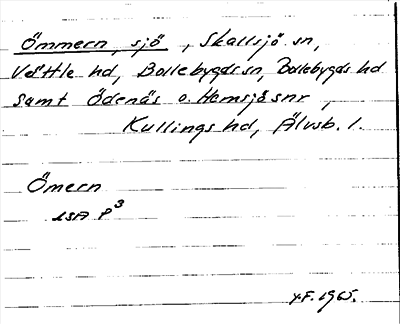 Ömmern, sjö, Skallsjö sn,
Vättle hd, Bollebygds sn, Bollebygds hd
samt Ödenäs o. Hemsjö snr,
Kullings hd, Älvsb. l.
Ömern
LSA P3
Y.F. 1965.